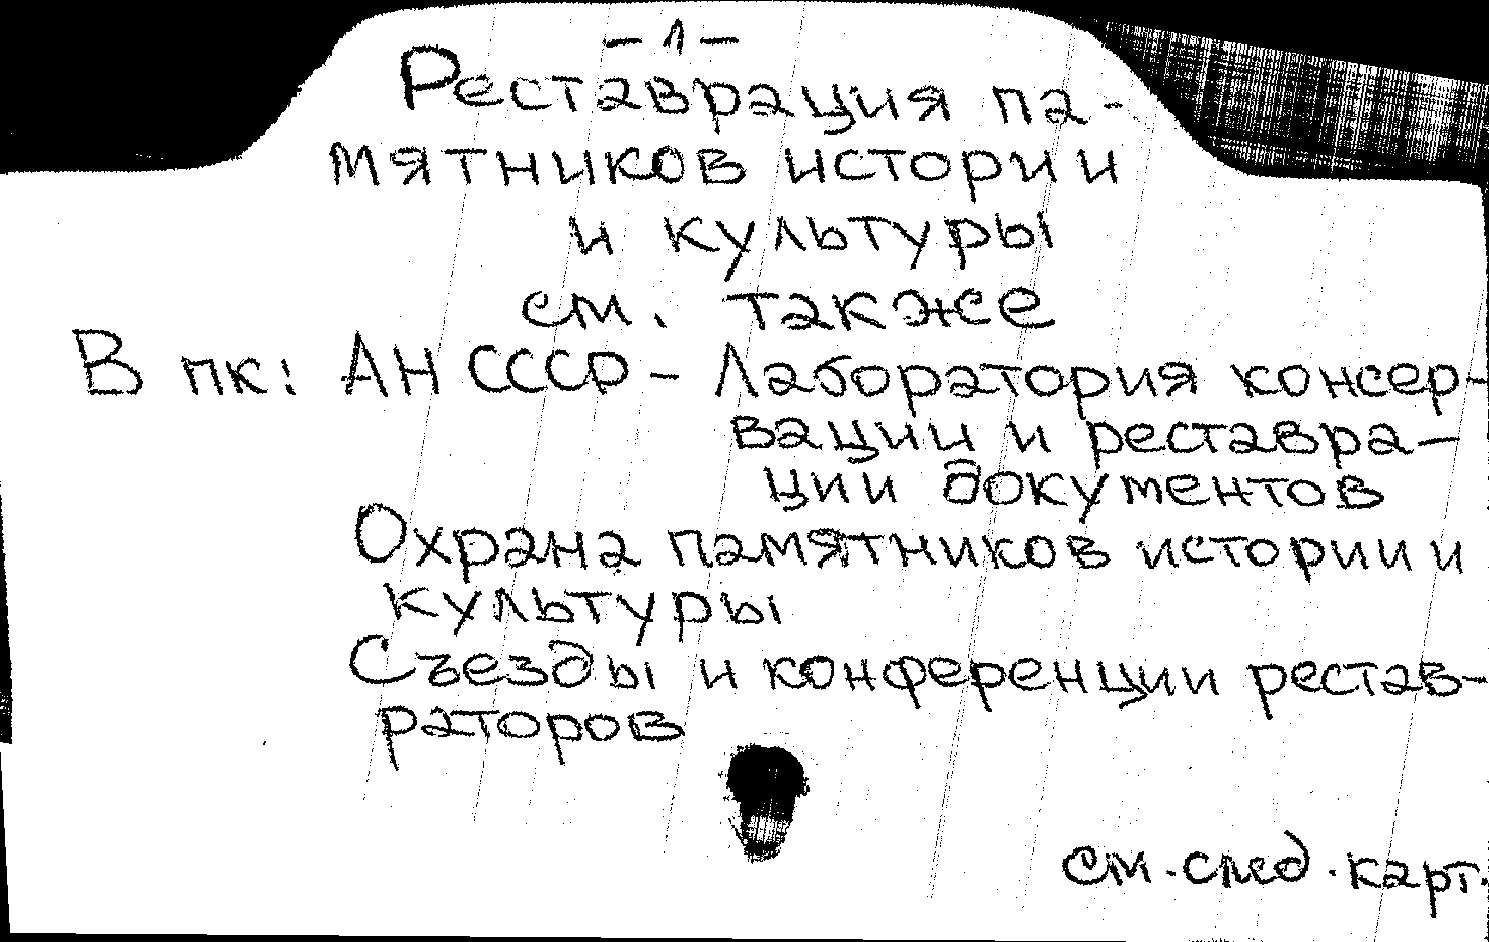 – 1 –
Реставрация па-
мятников истории
и культуры
см. также
В пк: АН СССР – Лаборатория консер-
вации и реставра-
ции документов
Охрана памятников истории и
культуры
Съезды и конференции рестав-
раторов
см. след. карт.